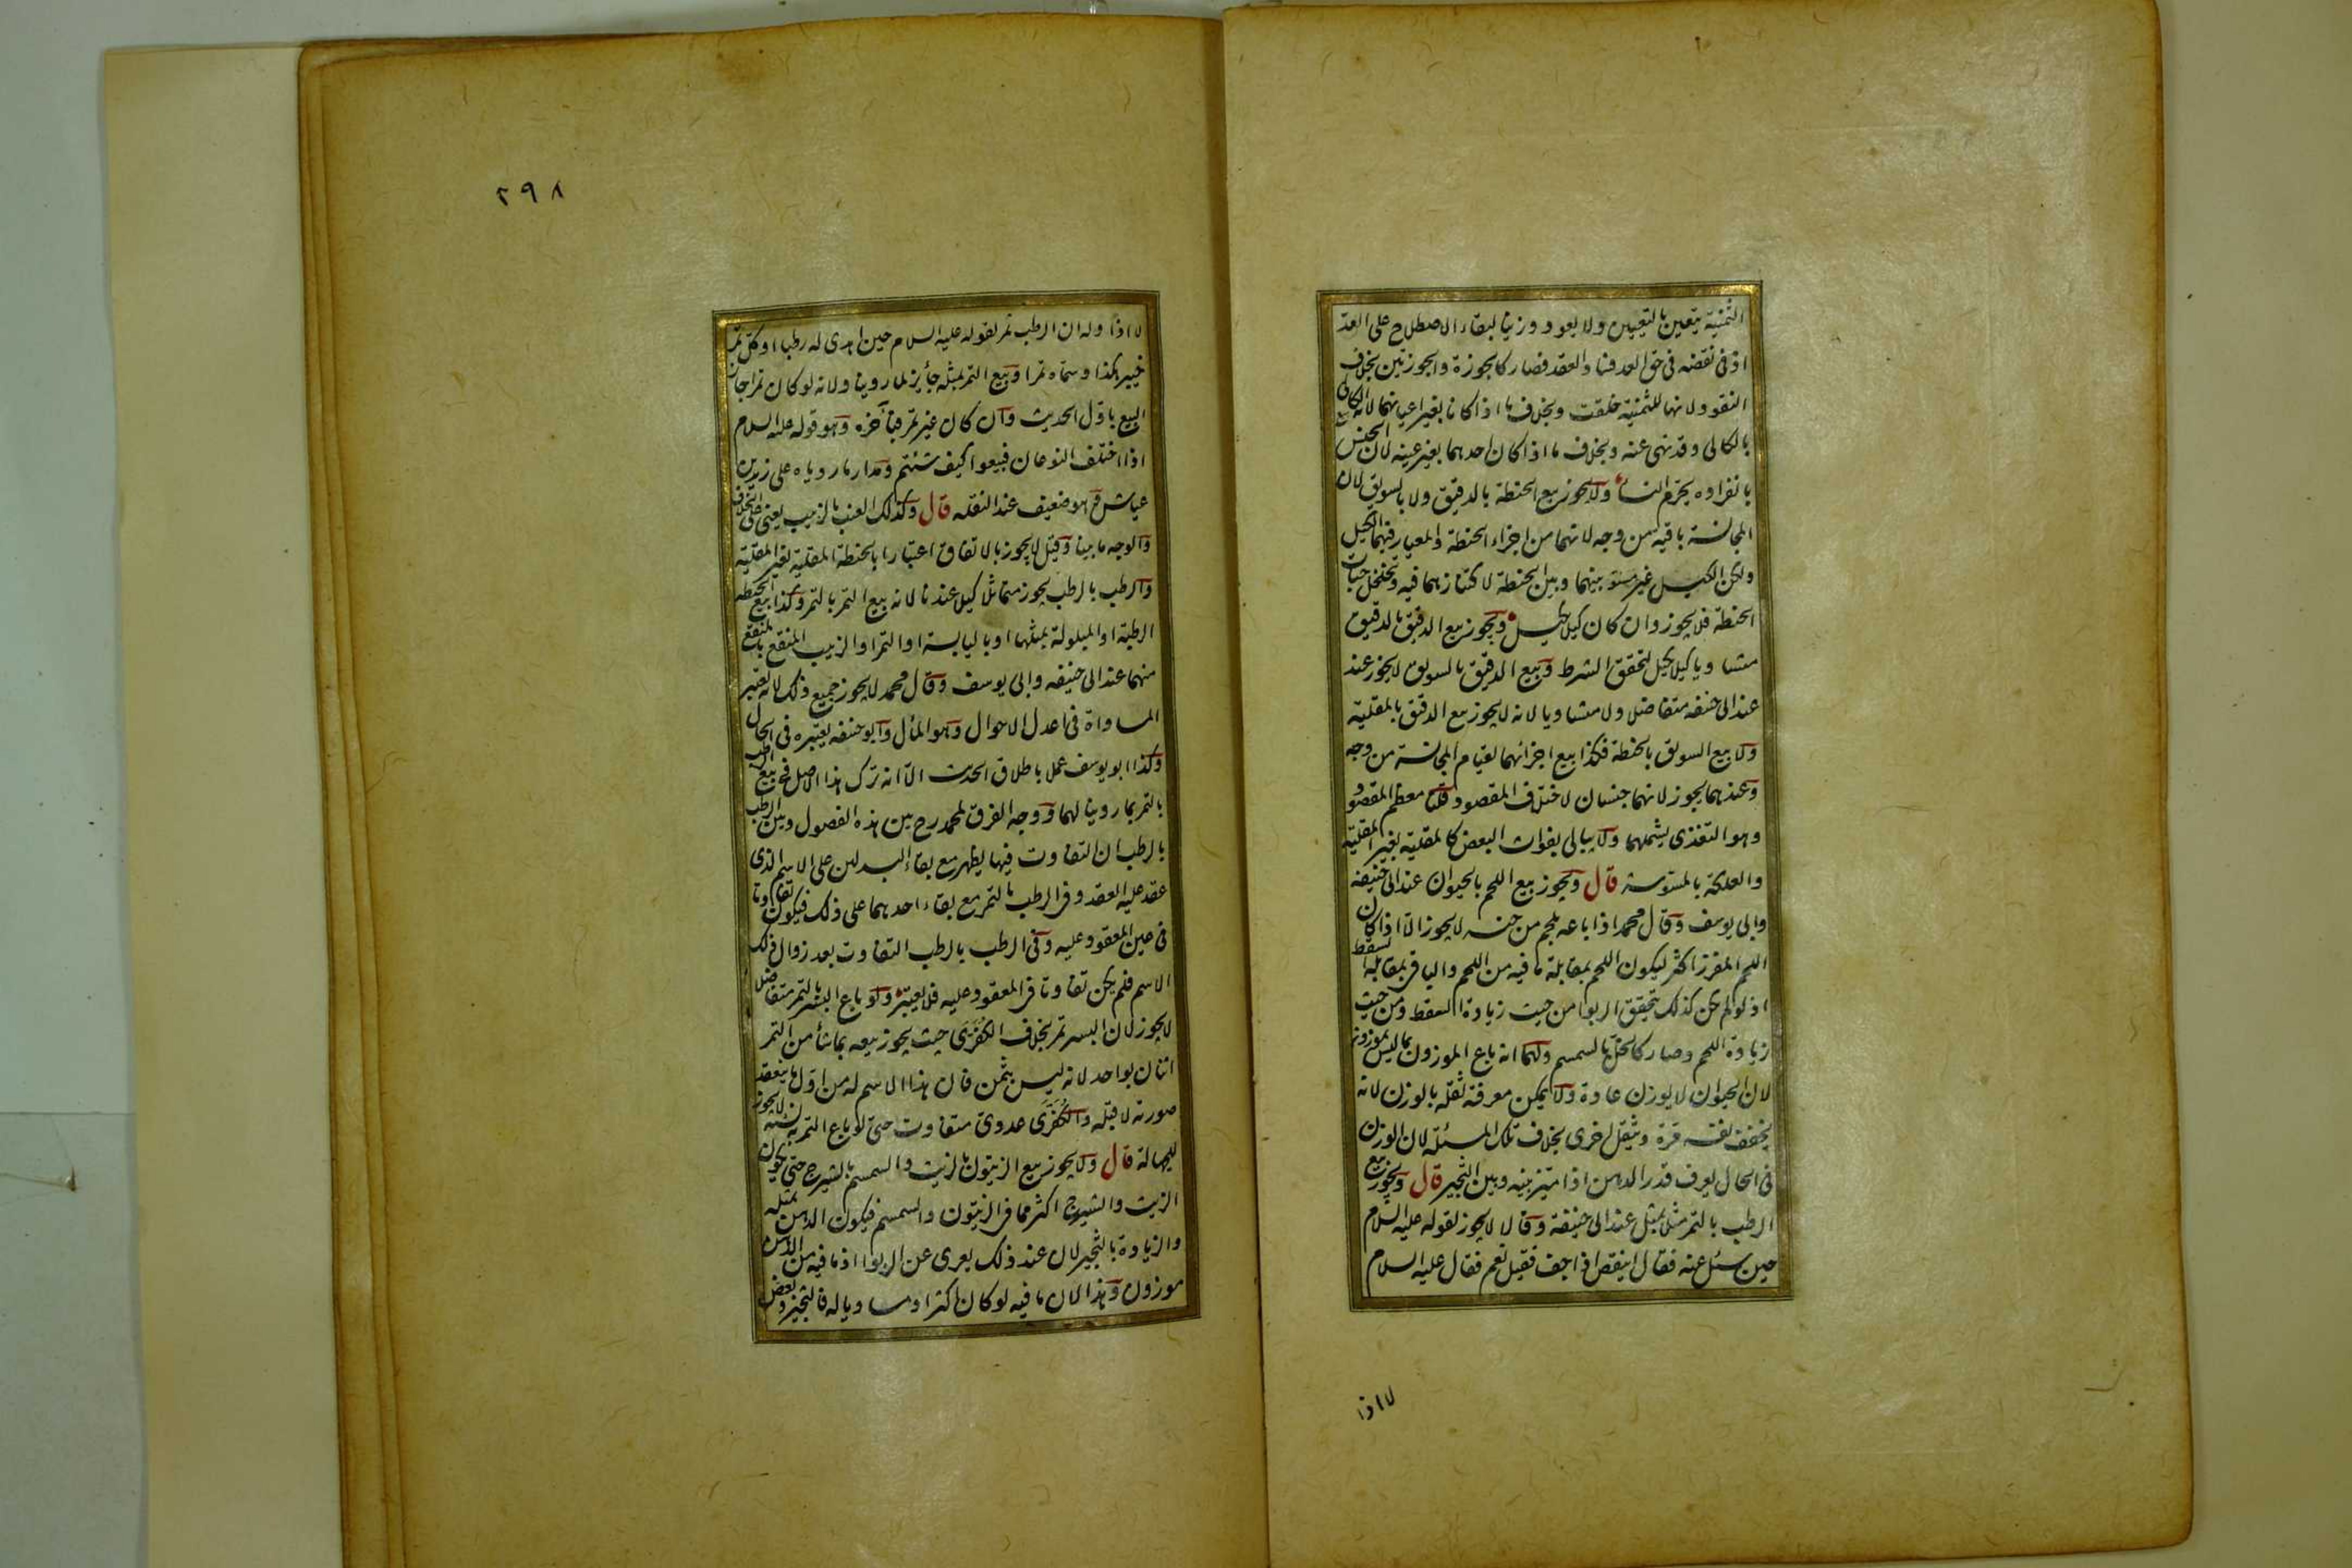 الثمنية يتعين بالتعيين ولا يعود وزنيا لبقاء الاصطلاح على العد
اذ فى نقضه فى حق العد فساد العقد فصار كالجوزة والجوزتين بخلاف
النقود لانها للثمنية خلقت وبخلاف ما اذا كانا بغير اعيانهما لانه كالئ
بالكالى وقد نهى عنه وبخلاف ما اذا كان احدهما بغير عينه لان الجنس
بانفراده يحرم النساء ولا يجوز بيع الحنطة بالدقيق ولا بالسويق لان
المجانسة باقية من وجه لانهما من اجزاء الحنطة والمعيار فيهما الكيل
ولكن الكيل غير مسو بينهما وبين الحنطة لاكتنازهما فيه وتخلخل حبات
الحنطة فلا يجوز وان كان كيلا بكيل ويجوز بيع الدقيق بالدقيق
متساويا كيلا بكيل لتحقق الشرط وبيع الدقيق بالسويق لا يجوز عند
عند ابى حنيفه متفاضلا ولا متساويا لانه لا يجوز بيع الدقيق بالمقلية
ولا بيع السويق بالحنطة فكذا بيع اجزائهما لقيام المجانسة من وجه
وعندهما يجوز لانهما جنسان لاختلاف المقصود قلنا معظم المقصود
وهو التغذى يشملهما ولا يبالى بفوات البعض كالمقلية بغير المقلية
والعلكة بالمسوسة قال ويجوز بيع اللحم بالحيوان عند ابى حنيفه
وابى يوسف وقال محمد اذا باعه بلحم من جنسه لا يجوز الا اذا كان
اللحم المفرز اكثر ليكون اللحم بمقابلة ما فيه من اللحم والباقى بمقابلة السقط
اذ لو لم يكن كذلك يتحقق الربوا من حيث زيادة السقط ومن حيث
زيادة اللحم وصار كالخل بالسمسم ولهما انه باع الموزون بما ليس بموزون
لان الحيوان لا يوزن عادة ولا يمكن معرفة ثقله بالوزن لانه
يخفف نفسه مرة ويثقل اخرى بخلاف تلك المسئلة لان الوزن
فى الحال يعرف قدر الدهن اذا ميز بينه وبين الثجير قال ويجوز بيع
الرطب بالتمر مثلا بمثل عند ابى حنيفة وقالا لا يجوز لقوله عليه السلام
حين سئل عنه فقال اينقص اذا جف فقيل نعم فقال عليه السلام
لا اذا
٢٩٨
لا اذا وله ان الرطب تمر لقوله عليه السلام حين اهدى له رطبا اوكل تمر
خيبر هكذا وسماه تمرا وبيع التمر بمثله جائز لما روينا ولانه لو كان تمرا جاز
البيع باول الحديث وان كان غير تمر فبآخره وهو قوله عليه السلام
اذا اختلف النوعان فبيعوا كيف شئتم ومدار ما روياه على زيد بن
عياش وهو ضعيف عند النقله قال وكذلك العنب بالزبيب يعنى على الخلاف
والوجه ما بينا وقيل لا يجوز بالاتفاق اعتبارا بالحنطة المقلية بغير المقلية
والرطب بالرطب يجوز متماثلا كيلا عندنا لانه بيع التمر بالتمر وكذا بيع الحنطة
الرطبة او المبلولة بمثلهما او باليابسة او التمر او الزبيب المنقع بالمنقع
منهما عند ابى حنيفه وابى يوسف وقال محمد لا يجوز جميع ذلك لانه يعتبر
المساواة فى اعدل الاحوال وهو المآل وابو حنيفه يعتبره فى الحال
وكذا ابو يوسف عملا باطلاق الحديث الا انه ترك هذا الاصل فى بيع الرطب
بالتمر بما روينا لهما ووجه الفرق لمحمد رح بين هذه الفصول وبين الرطب
بالرطب ان التفاوت فيها يظهر مع بقاء البدلين على الاسم الذى
عقد عليه العقد وفى الرطب بالتمر مع بقاء احدهما على ذلك فيكون تفاوتا
فى عين المعقود عليه وفى الرطب بالرطب التفاوت بعد زوال ذلك
الاسم فلم يكن تفاوتا فى المعقود عليه فلا يعتبر ولو باع البسر بالتمر متفاضلا
لا يجوز لان البسر تمر بخلاف الكفرى حيث يجوز بيعه بما شاء من التمر
اثنان بواحد لانه ليس بتمر فان هذا الاسم له من اول ما ينعقد
صورته لا قبله والكفرى عددى متفاوت حتى لو باع التمر به نسئة لا يجوز
للجهالة قال ولا يجوز بيع الزيتون بالزيت والسمسم بالشيرج حتى يكون
الزيت والشيرج اكثر مما فى الزيتون والسمسم فيكون الدهن بمثله
والزيادة بالثجير لان عند ذلك يعرى عن الربوا اذ ما فيه من الدهن
موزون وهذا لان ما فيه لو كان اكثر او مساويا له فالثجير وبعض